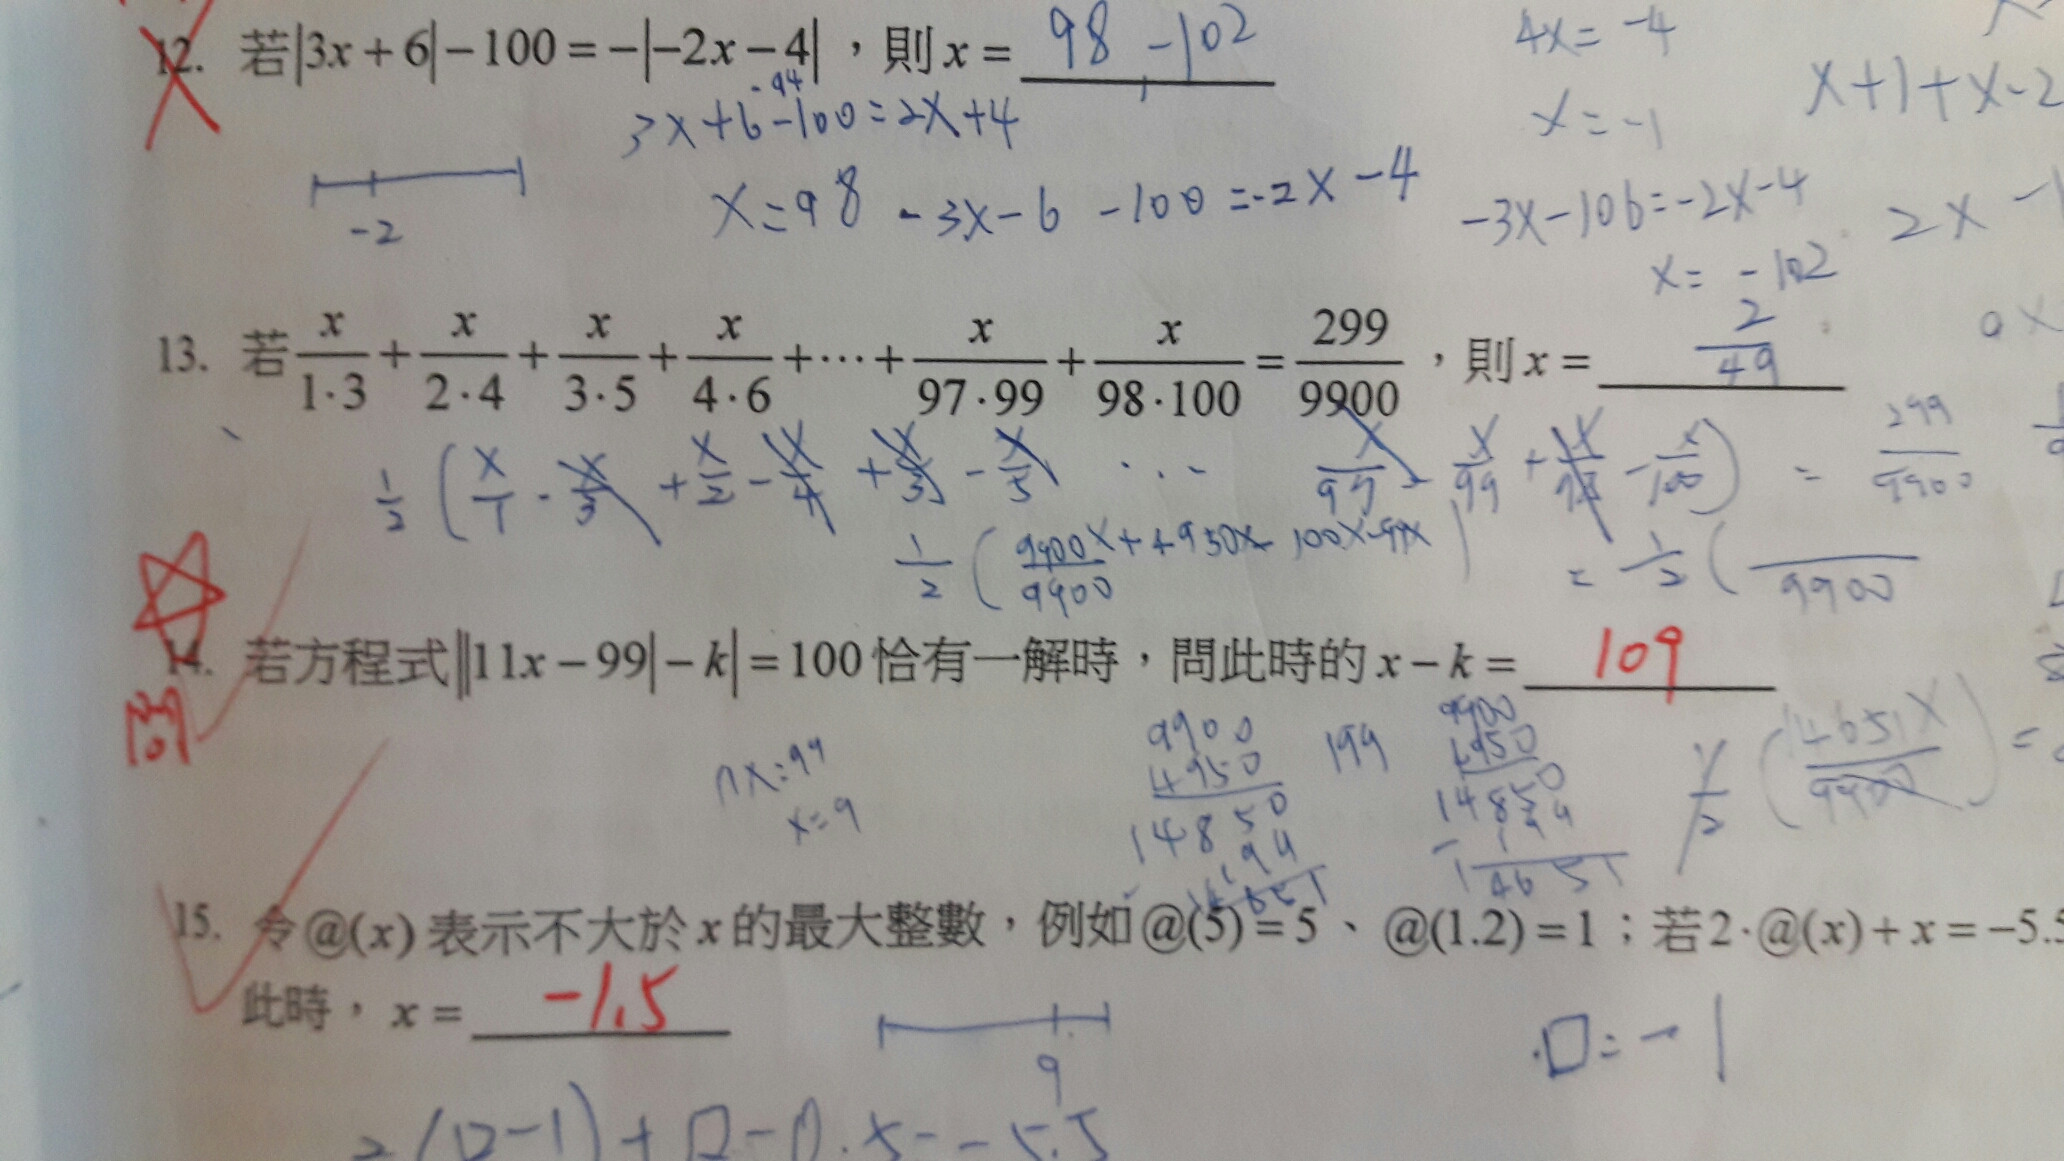 12. 若|3x+6|-100=-|-2x-4|，則 x= 98 -102
4x=-4
-94
3x+6-100=2x+4
x=-1
x+1+x-2
-2
x=98 -3x-6-100=-2x-4
-3x-106=-2x-4
2x-1
x=-102
13. 若 x/1·3 + x/2·4 + x/3·5 + x/4·6 +⋯+ x/97·99 + x/98·100 = 299/9900，則 x= 2/49
1/2 ( x/1 - x/3 + x/2 - x/4 + x/3 - x/5 ... x/97 - x/99 + x/98 - x/100 ) = 299/9900
1/2 ( 9900x+4950x-100x-99x/9900 ) = 1/2 ( /9900
14. 若方程式||11x-99|-k|=100恰有一解時，問此時的 x-k= 109
問
11x=99
x=9
9900
4950
14850
199
9900
4950
14850
199
14651
1/2 ( 14651x/9900 ) =
15. 令@(x)表示不大於 x 的最大整數，例如@(5)=5、@(1.2)=1；若2·@(x)+x=-5.5
此時，x= -1.5
9
□=-1